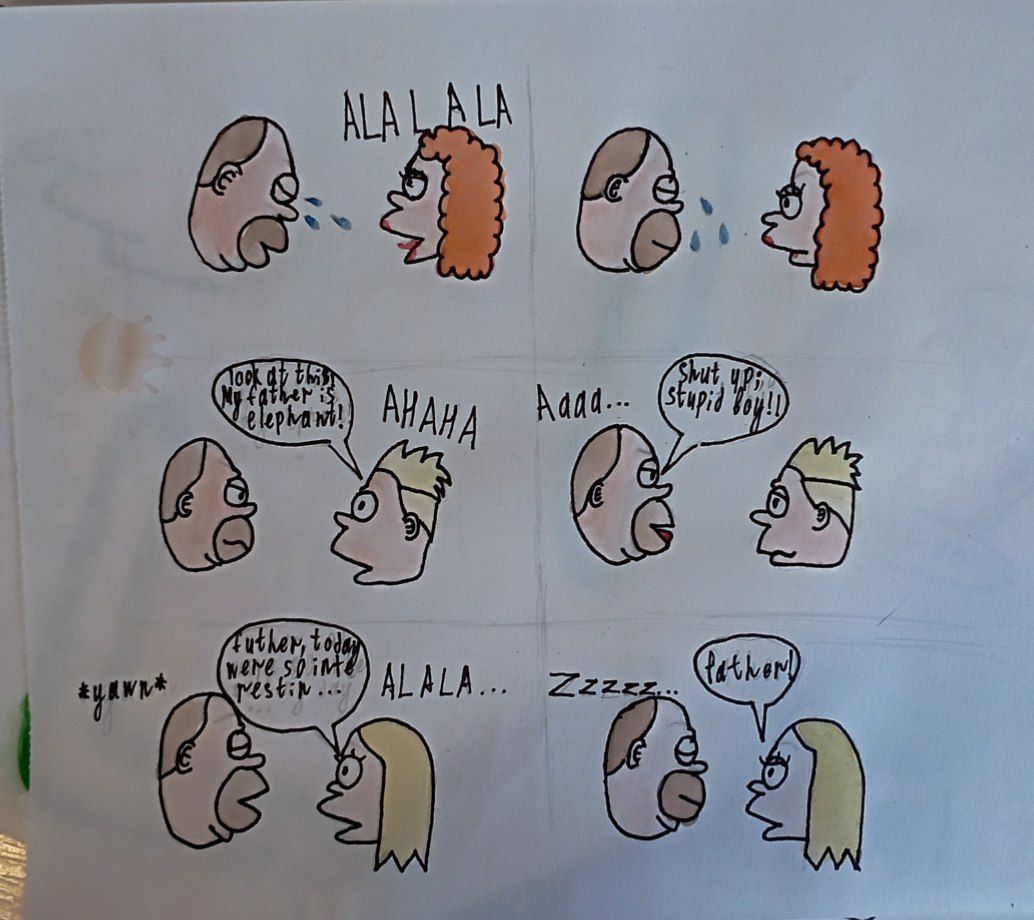 ALALALA
look at this!
My father is
elephant!
AHAHA
Aaaa...
Shut up,
stupid boy!!
*yawn*
futher, today
were so inte
restin...
ALALA...
Zzzzz...
father!